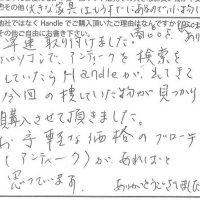 社ではなく Handle でご購入頂いたご理由はなんですか
その他ご自由にお書き下さい。
早速取り付けました。
パソコンで、アンティークを検索を
していたら Handleが、出てきて
今回の捜していた物が見つかり
購入させて頂きました。
お手軽な価格のブローチ
(アンティーク)が、あればと
思っています。
ありがとうございました